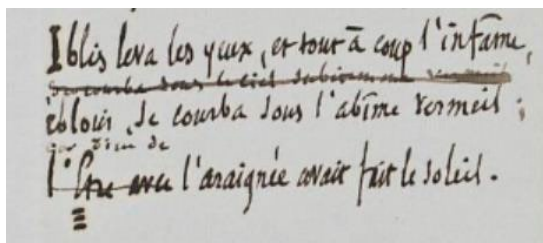 Iblis leva les yeux, et tout à coup l'infâme,
se courba sous le ciel subitement vermeil
ébloui, se courba sous l'abîme vermeil ;
car Dieu de
l'Être avec l'araignée avait fait le soleil.